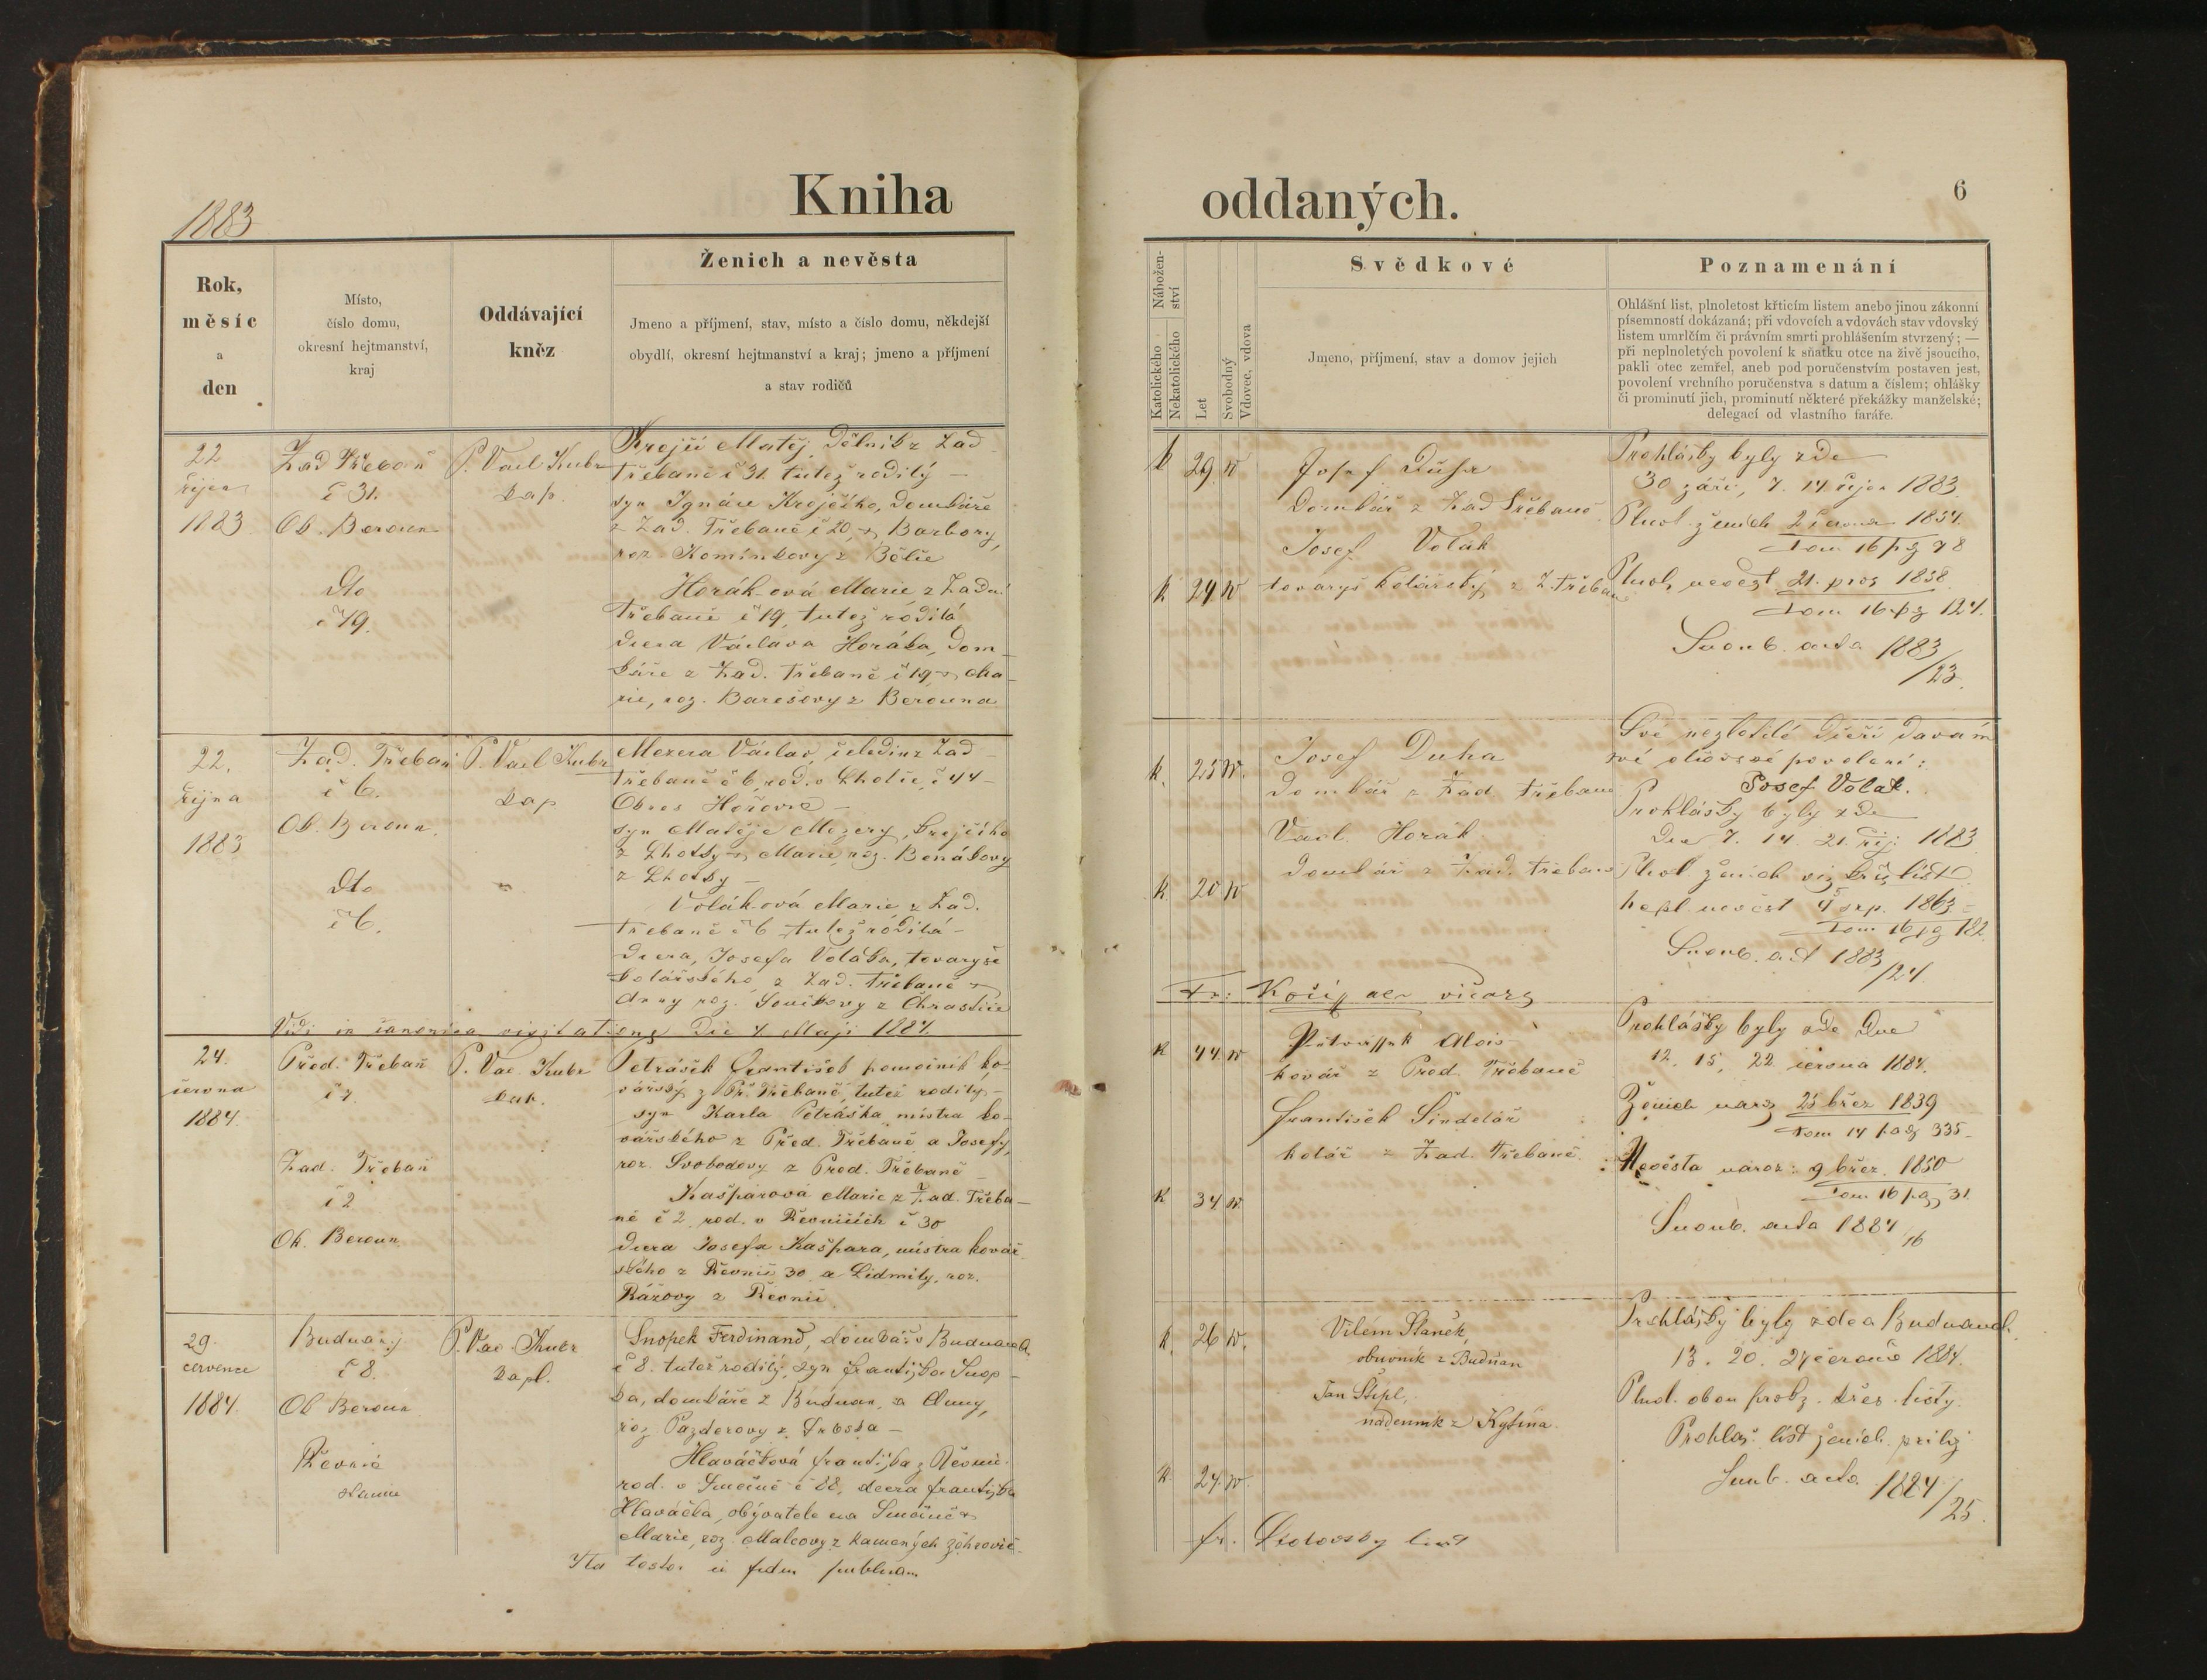 1883
Kniha
Rok,
měsíc
a
den
Místo,
číslo domu,
okresní hejtmanství,
kraj
Oddávající
kněz
Ženich a nevěsta
Jmeno a příjmení, stav, místo a číslo domu, někdejší
obydlí, okresní hejtmanství a kraj; jmeno a příjmení
a stav rodičů
22
října
1883
Zad Třebaň
č 31.
Ob. Beroun
Dto
č 19.
P. Vacl Kubr
kap.
Krejčí Matěj, dělník z Zad
Třebaně č 31. tutéž rodilý –
syn Ignáce Krejčího, domkáře
z Zad. Třebaně č 20, Barbory,
roz. Komínkovy z Bělče
Horák-ová Marie, z Zadní
Třebaně č 19, tutéž rodilá
dcera Václava Horáka, dom-
káře z Zad. Třebaně č 19 Ma-
rie, roz. Barešovy z Berouna
22.
října
1883
Zad. Třebaň
č 6.
Ob. Beroun.
Dto
č 6.
P. Vacl Kubr
kap
Mezera Václav, čeledín z Zad
Třebaně č 6, rod. v Lhotce, č 44 –
Okres Hořovic –
syn Matěje Mezery, krejčího
z Lhotky Marie, roz.
z Lhotky –
Volák-ová Marie z Zad.
Třebaně č 6 tutéž rodilá –
dcera, Josefa Voláka, tovaryše
kolářského z Zad. Třebaně
Anny roz.
Vidi in canonica visitatione die 4 Maji 1884.
24.
června
1884
Před. Třebaň
č 7.
Zad. Třebaň
č 2
Ok. Beroun.
P. Vac Kubr
kap.
Petrášek František pomocník ko-
vářský z Př. Třebaně, tutéž rodilý –
syn Karla Petráška mistra ko-
vářského z Před. Třebaně a Josefy,
roz. Svobodovy z Před. Třebaně –
Kašparová Marie z Zad. Třeba-
ně č 2. rod. v Řevnicích č 30
dcera Josefa Kašpara, mistra kovář-
ského z Řevnic 30 a Lidmily, roz.
Rážovy z Řevnic
29.
července
1884.
Budňany
č 8.
Ob Beroun
Řevnic
P. Vac Kubr
kapl.
Snopek Ferdinand, domkář v Budňanech
č 8. tutéž rodilý, syn Františka Snop-
ka, domkáře z Budňan, a Anny,
roz Pazderovy z
Hlaváčková Františka z Řevnic
rod. v Smečně č 88, dcera Františka
Hlaváčka, obývatele na Smečně
Marie, roz Malcovy z Kamenných Žehrovic.
Ita testor in fidem publicam
oddaných.
6
Nábožen-
ství
Katolického
Nekatolického
Let
Svobodný
Vdovec, vdova
Svědkové
Jmeno, příjmení, stav a domov jejich
Poznamenání
Ohlášní list, plnoletost křticím listem anebo jinou zákonní
písemností dokázaná; při vdovcích a vdovách stav vdovský
listem umrlčím či právním smrti prohlášením stvrzený; —
při neplnoletých povolení k sňatku otce na živě jsoucího,
pakli otec zemřel, aneb pod poručenstvím postaven jest,
povolení vrchního poručenstva s datum a číslem; ohlášky
či prominutí jich, prominutí některé překážky manželské;
delegací od vlastního faráře.
k
29.
k
24
Josef Duha
Domkář z Zad Třebaně
Josef Volák
tovaryš kolářský z Z. Třebaň
Prohlášky byly zde
30 září, 7. 14 říjn 1883.
Plnol. ženich 2 června 1854.
Tom 16 pg 78
Plnol. nevěst 21. pros 1858
Tom 16. pg 124.
Snoub. acta 1883/23.
k.
25
k
20
Josef Duha
Domkář z Zad Třebaně
Vacl. Horák
domkář z Zad. Třebaně
Své nezletilé dceři davám
své otcovské povolení:
Josef Volák.
Prohlášky byly zde
Dne 7. 14. 21. říj. 1883
Plnol ženich viz křt. list
nepl. nevěst srp. 1863
Tom 16 pg 182
Snoub. act 1883/24.
Fr: Kočí
k
44
k
34
Petrassek Alois
kovář z Před Třebaně
František Šindelář
kolář z Zad. Třebaně.
Prohlášky byly zde Dne
12. 15. 22 června 1884.
Ženich naroz 25 břez 1839
Tom 14 pag 335
Nevěsta naroz: 9 břez. 1850
Tom 16 pag 31
Snoub. acta 1884/16
k.
26
k
24
Vilém Staněk,
obuvník z Budňan
Jan Štipl,
nádenník z Kytína.
Prohlášky byly zde a Budňanech
13. 20. 27 1884.
Plnol. obou prokz. křes. listy.
Prohláš. list ženich. přilož
Snub. acta 1884/25.